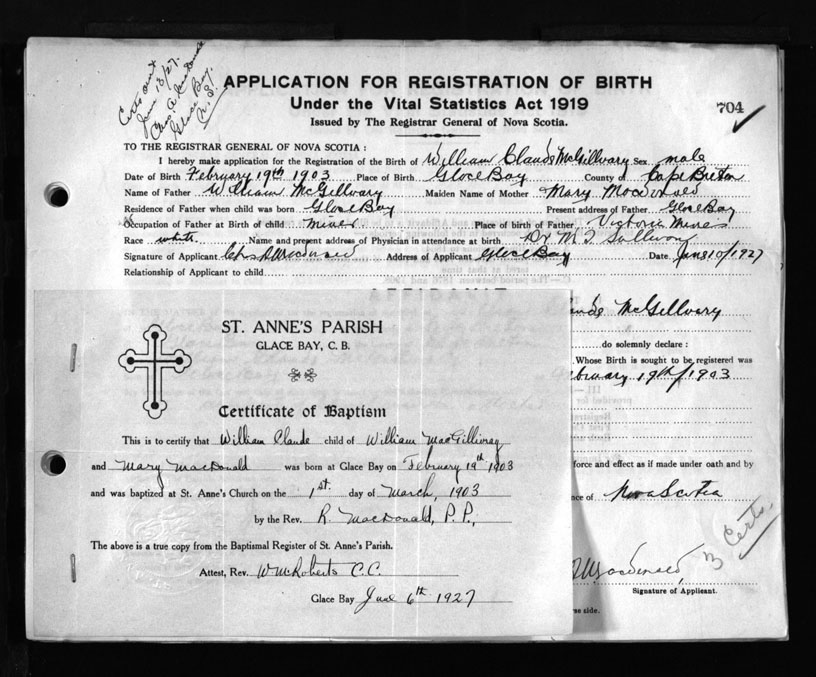 Certs sent
June 13/27.
Glace Bay.
N. S.
APPLICATION FOR REGISTRATION OF BIRTH
Under the Vital Statistics Act 1919
704
Issued by The Registrar General of Nova Scotia.
TO THE REGISTRAR GENERAL OF NOVA SCOTIA :
I hereby make application for the Registration of the Birth of William Claude McGillvary Sex male
Date of Birth February 19th 1903 Place of Birth Glace Bay County of Cape Breton
Name of Father William McGillvary Maiden Name of Mother Mary Macdonald
Residence of Father when child was born Glace Bay Present address of Father Glace Bay
Occupation of Father at Birth of child miner Place of Birth of Father Victoria Mines
Race white. Name and present address of Physician in attendance at birth Dr M. T. Sullivan
Signature of Applicant Chas A Macdonald Address of Applicant Glace Bay Date 10/1927
Relationship of Applicant to child
Claude McGillvary
do solemnly declare :
Whose Birth is sought to be registered was
February 19th/1903
force and effect as if made under oath and by
nce of Nova Scotia
Macdonald
3 Certs.
Signature of Applicant.
se side.
ST. ANNE'S PARISH
GLACE BAY, C. B.
Certificate of Baptism
This is to certify that William Claude child of William MacGillivray
and Mary MacDonald was born at Glace Bay on February 19th 1903
and was baptized at St. Anne's Church on the 1st. day of March, 1903
by the Rev. R. MacDonald, P. P.,
The above is a true copy from the Baptismal Register of St. Anne's Parish.
Attest, Rev. Wm Roberts C.C.
Glace Bay June 6th 1927